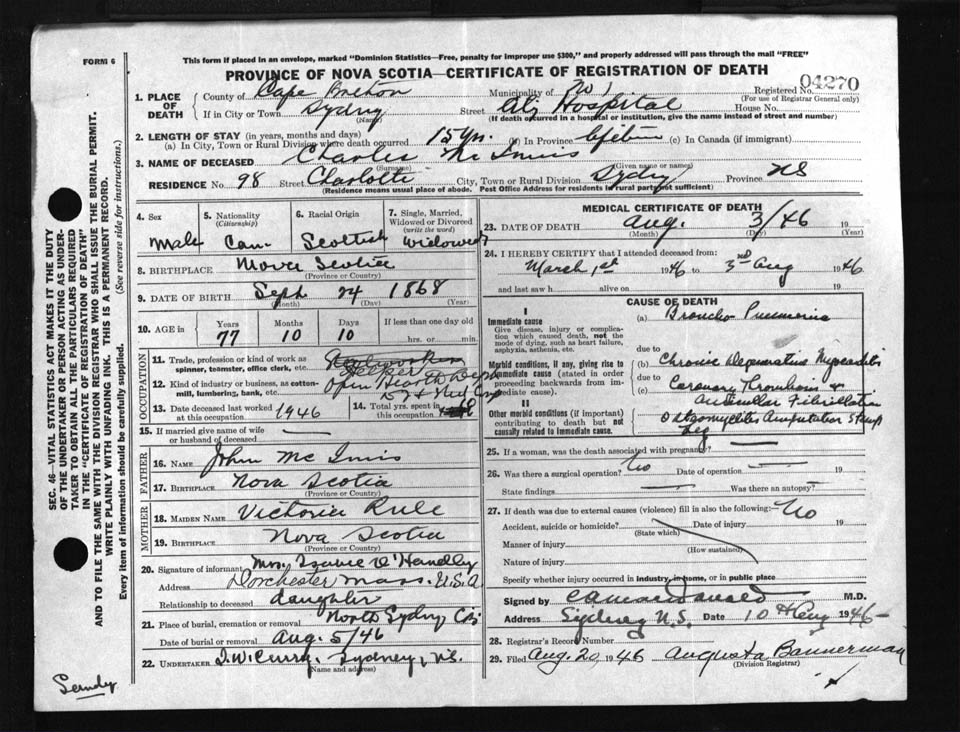 FORM 6
This form if placed in an envelope, marked "Dominion Statistics—Free, penalty for improper use $300," and properly addressed will pass through the mail "FREE"
PROVINCE OF NOVA SCOTIA—CERTIFICATE OF REGISTRATION OF DEATH
04270
1. PLACE OF DEATH
County of Cape Breton Municipality of No 1 Registered No.
(For use of Registrar General only)
If in City or Town Sydney Street City Hospital House No.
(Name) (If death occurred in a hospital or institution, give the name instead of street and number)
2. LENGTH OF STAY (in years, months and days)
(a) In City, Town or Rural Division where death occurred 15 yrs. (b) In Province Lifetime (c) In Canada (if immigrant)
3. NAME OF DECEASED Charles Mc Innis
(Surname) (Given name or names)
RESIDENCE No. 98 Street Charlotte City, Town or Rural Division Sydney Province NS
(Residence means usual place of abode. Post Office Address for residents in rural parts not sufficient)
4. Sex
Male
5. Nationality
(Citizenship)
Can.
6. Racial Origin
Scottish
7. Single, Married, Widowed or Divorced
(write the word)
Widowed
8. BIRTHPLACE Nova Scotia
(Province or Country)
9. DATE OF BIRTH Sept 24 1868
(Month) (Day) (Year)
10. AGE in Years Months Days If less than one day old
77 10 10 hrs. or min.
OCCUPATION
11. Trade, profession or kind of work as spinner, teamster, office clerk, etc.
12. Kind of industry or business, as cotton-mill, lumbering, bank, etc. Open Hearth Dept
13. Date deceased last worked at this occupation 1946
14. Total yrs. spent in this occupation
15. If married give name of wife or husband of deceased —
FATHER
16. NAME John Mc Innis
17. BIRTHPLACE Nova Scotia
(Province or Country)
MOTHER
18. MAIDEN NAME Victoria Rule
19. BIRTHPLACE Nova Scotia
(Province or Country)
20. Signature of informant Mrs. O'Handley
Address Dorchester Mass. U.S.A
Relationship to deceased daughter
21. Place of burial, cremation or removal North Sydney, CB
Date of burial or removal Aug. 5/46
22. UNDERTAKER Sydney, NS.
(Name and address)
MEDICAL CERTIFICATE OF DEATH
23. DATE OF DEATH Aug. 3/46 19
(Month) (Day) (Year)
24. I HEREBY CERTIFY that I attended deceased from:
March 1st 1946 to 3rd Aug 1946
and last saw h alive on 19
CAUSE OF DEATH
I
Immediate cause
Give disease, injury or complication which caused death, not the mode of dying, such as heart failure, asphyxia, asthenia, etc.
(a) Broncho Pneumonia
due to
Morbid conditions, if any, giving rise to immediate cause (stated in order proceeding backwards from immediate cause).
(b) Chronic Degenerative Myocarditis
due to
(c) Coronary Thrombosis & Auricular Fibrillation
II
Other morbid conditions (if important) contributing to death but not causally related to immediate cause.
Osteomyelitis Amputation Stump Leg
25. If a woman, was the death associated with pregnancy? —
26. Was there a surgical operation? No Date of operation — 19
State findings — Was there an autopsy? —
27. If death was due to external causes (violence) fill in also the following:— No
Accident, suicide or homicide? Date of injury 19
(State which)
Manner of injury
(How sustained)
Nature of injury
Specify whether injury occurred in industry, in home, or in public place
Signed by M.D.
Address Sydney N.S. Date 10th Aug 1946
28. Registrar's Record Number
29. Filed Aug. 20, 1946 Augusta Bannerman
(Division Registrar)
SEC. 46—VITAL STATISTICS ACT MAKES IT THE DUTY OF THE UNDERTAKER OR PERSON ACTING AS UNDERTAKER TO OBTAIN ALL THE PARTICULARS REQUIRED IN THE "CERTIFICATE OF REGISTRATION OF DEATH" AND TO FILE THE SAME WITH THE DIVISION REGISTRAR WHO SHALL ISSUE THE BURIAL PERMIT.
WRITE PLAINLY WITH UNFADING INK. THIS IS A PERMANENT RECORD.
Every item of information should be carefully supplied. (See reverse side for instructions.)